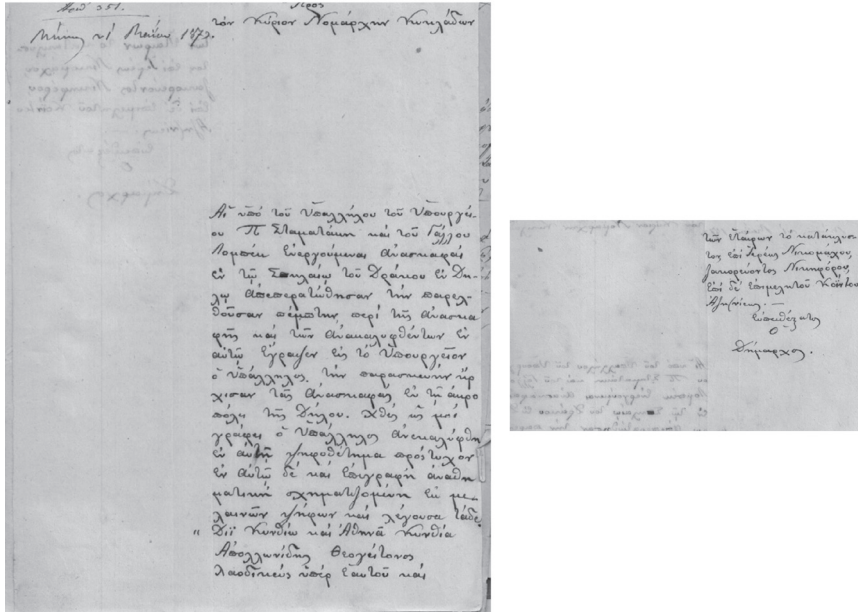 Ἀριθ 351.
Πρὸς
τὸν Κύριον Νομάρχην Κυκλάδων
1873.
Αἱ ὑπὸ τοῦ Ὑπαλλήλου τοῦ Ὑπουργεί-
ου Π Σταματάκη καὶ τοῦ Γάλλου
ἐνεργούμεναι ἀνασκαφαὶ
ἐν τῷ Σπηλαίῳ τοῦ Δράκου ἐν Δή-
λῳ ἀπεπερατώθησαν τὴν παρελ-
θοῦσαν πέμπτην, περὶ τῆς ἀνασκα
φῆς καὶ τῶν ἀνακαλυφθέντων ἐν
αὐτῷ ἔγραψεν εἰς τὸ Ὑπουργεῖον
ὁ Ὑπάλληλος, τὴν παρασκευὴν ἤρ
χισαν τὰς ἀνασκαφὰς ἐν τῇ ἀκρο
πόλει τῆς Δήλου. Χθὲς ὡς μοὶ
γράφει ὁ Ὑπάλληλος ἀνεκαλύφθη
ἐν αὐτῇ ψηφοθέτημα
ἐν αὐτῷ δὲ καὶ ἐπιγραφὴ ἀναθη
ματικὴ σχηματιζομένη ἐκ με
λαινῶν ψήφων καὶ λέγουσα τάδε
" Διῒ Κυνθίῳ καὶ Ἀθηνᾷ Κυνθίᾳ
Ἀπολλωνίδης Θεογείτονος
Λαοδικεὺς ὑπὲρ ἑαυτοῦ καὶ
τῶν ἑταίρων τὸ κατάκλυσ-
τον ἐπὶ Ἱερέως Νικομάχου,
ζακορεύοντος Νικηφόρου,
ἐπὶ δὲ ἐπιμελητοῦ Κοΐντου
Ἀζηνιέως. —
Εὐπειθέστατος
Ὁ
Δήμαρχος.